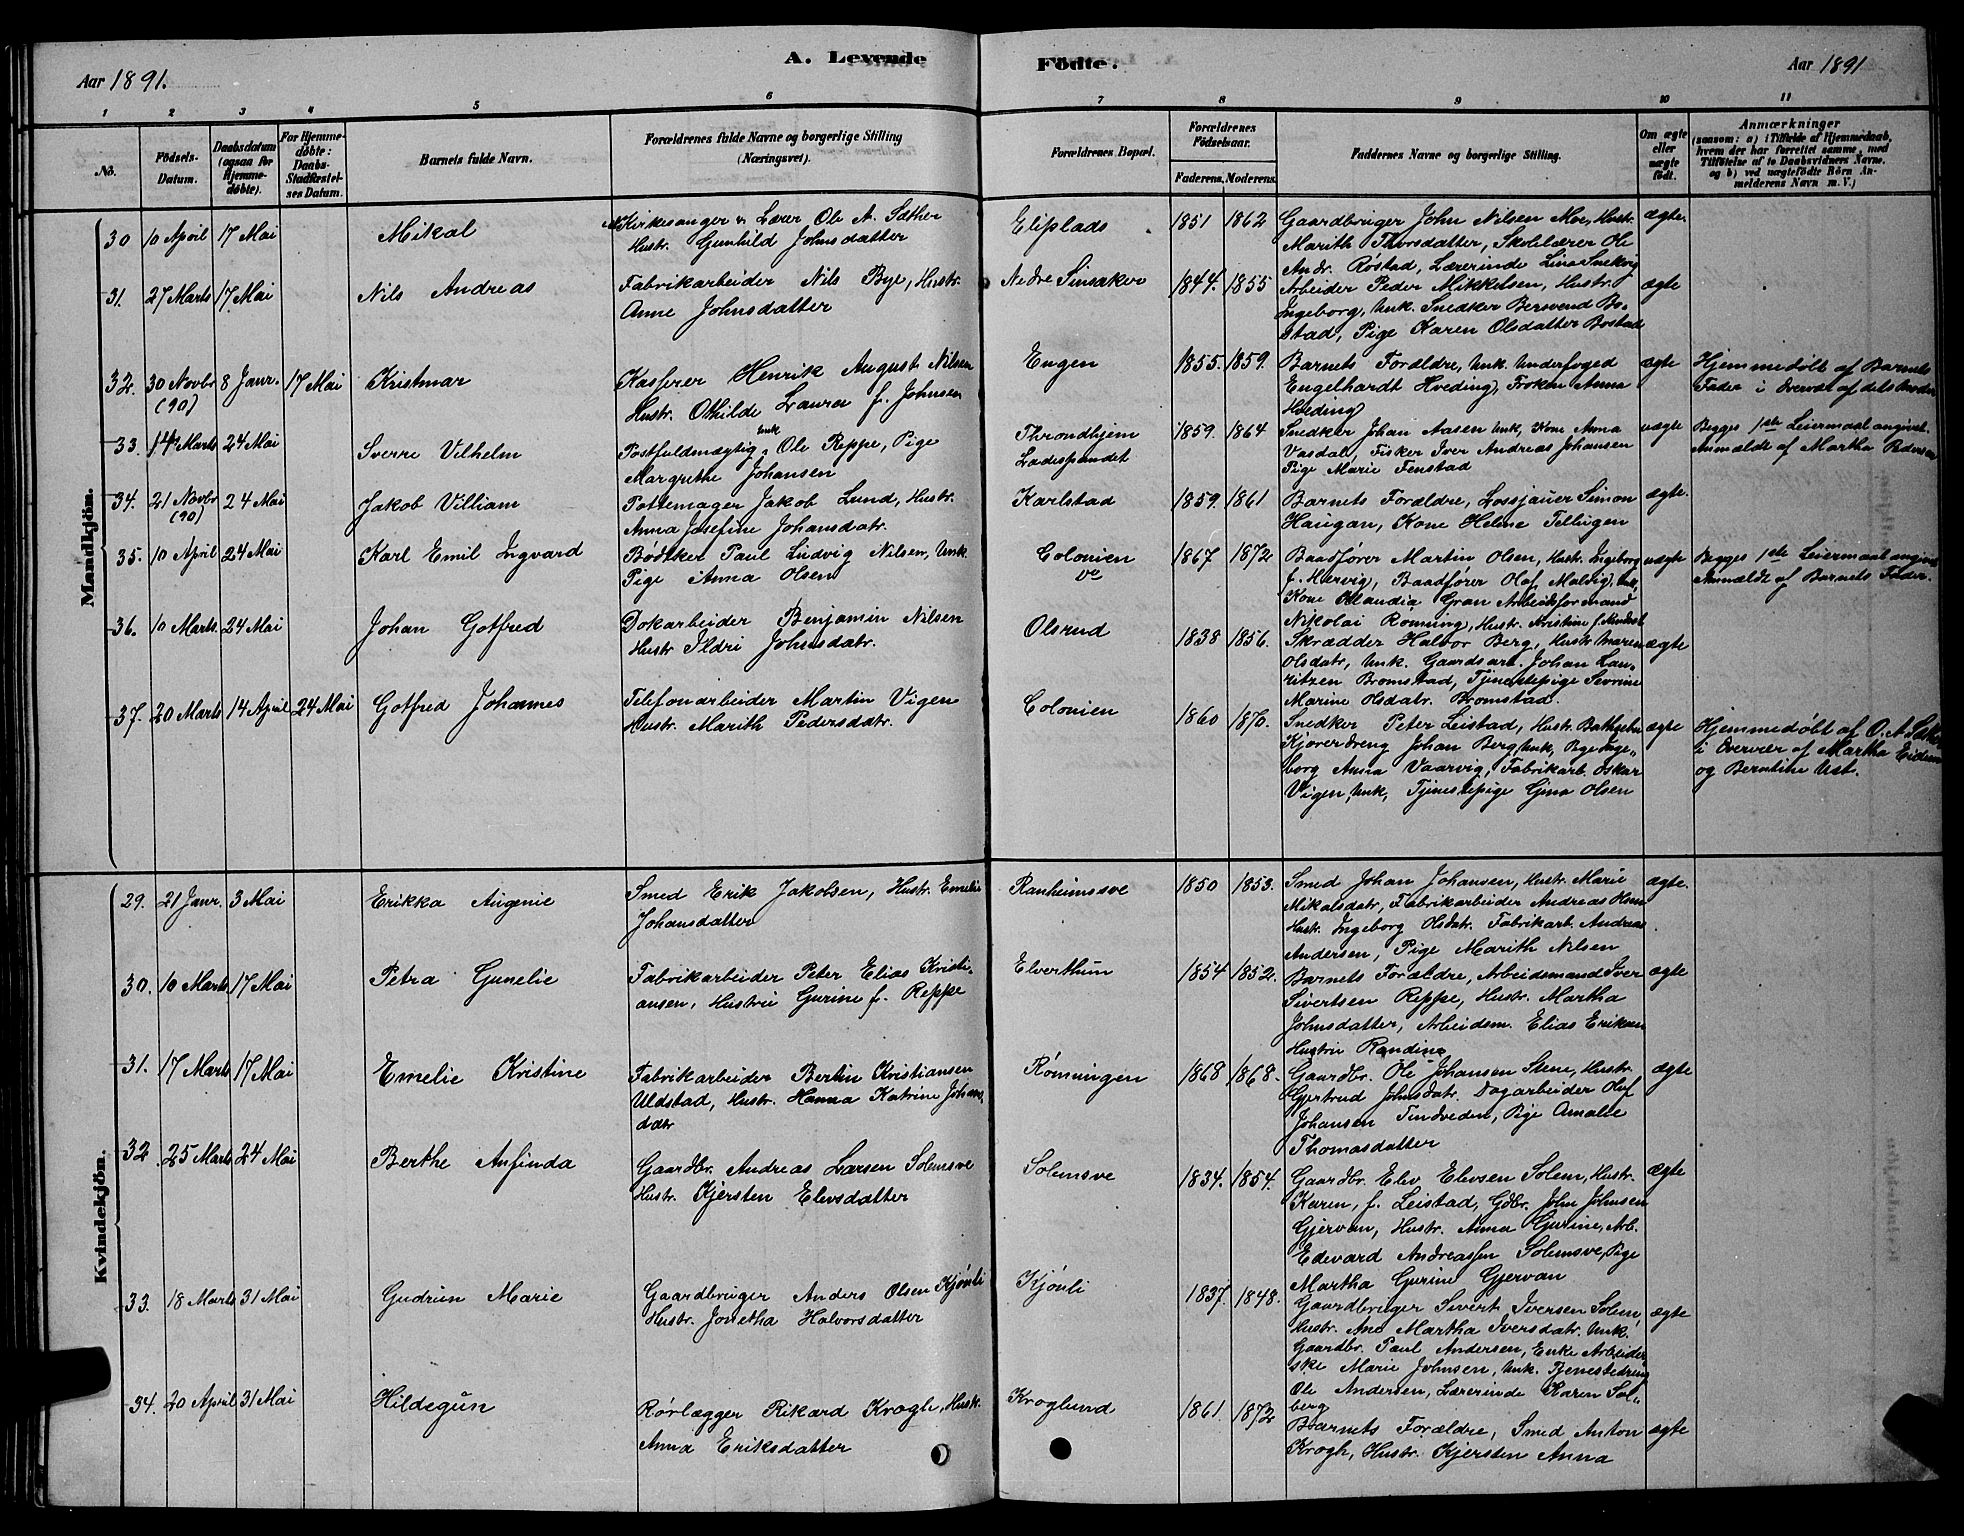 A. Levende Födte.
Aar 1891.
Aar 1891
1 2 3 4 5 6 7 8 9 10 11
No.
Födsels-Datum.
Daabsdatum (ogsaa for Hjemmedøbte).
For Hjemmedøbte: Daabs-Stadfæstelses Datum.
Barnets fulde Navn.
Forældrenes fulde Navne og borgerlige Stilling (Næringsvei).
Forældrenes Bopæl.
Forældrenes Födselsaar.
Faderens. Moderens.
Faddernes Navne og borgerlige Stilling.
Om ægte eller uægte født.
Anmærkninger
(saasom: a) i Tilfælde af Hjemmedaab, hvem der har forrettet samme, med Tilföielse af to Daabsvidners Navne, og b) ved uægtefödte Börn Anmelderens Navn m. V.)
Mandkjön.
30 10 April 17 Mai Mikal
Kirkesanger & Lærer Ole A. Sæther
Hustr. Gunhild Johnsdatter
Eliplads 1851 1862
Gaardbruger John Nilsen Moe, Hustr.
Marith Thorsdatter, Skolelærer Ole
Andr. Röstad, Lærerinde Lina Snekvig
ægte.
31. 27 Marts 17 Mai Nils Andreas
Fabrikarbeider Nils Bye, Hustr.
Anne Johnsdatter
Nedre Sinsaker 1844. 1855
Arbeider Peder Mikkelsen, Hustr.
Ingeborg, Unk. Snedker Bernvend Bo-
stad, Pige Karen Olsdatter Bostad
ægte
32. 30 Novbr (90) 8 Janr. 17 Mai Kristmar
Kasserer Henrik August Nilsen
Hustr. Othilde Laura f. Johnsen
Engen 1855. 1859.
Barnets Forældre, Unk. Underfoged
Engelhardt Hveding, Frøken Anna
Hveding
ægte
Hjemmedöbt af Barnets
Fader i Overvær af dets Moder
33. 14 Marts 24 Mai Sverre Vilhelm
Postfuldmægtig Unk. Ole Reppe, Pige
Margrethe Johansen
Throndhjem
Ladespundet
1859. 1864
Snedker Johan Aasen Unk, Kone Anna
Vasdal, Fisker Iver Andreas Johansen
Pige Marie Fenstad
uægte
Begges 1ste Leiermaal angivet.
Anmældt af Martha Pedersen
34. 21 Novbr (90) 24 Mai Jakob Villiam
Pottemager Jakob Lund, Hustr.
Anna Josefine Johansdatr.
Karlstad 1859. 1861
Barnets Forældre, Lossjauer Simon
Haugan, Kone Helene Tellingen
ægte.
35. 10 April 24 Mai Karl Emil Ingvard
Bødtker Paul Ludvig Nilsen, Unk
Pige Anna Olsen
Colonien
ve
1867 1872
Baadfører Martin Olsen, Hustr. Ingeborg
f. Hervig, Baadfører Olaf Malvig, Unk,
Kone Olandia Gran Arbeidsformand
Nikolai Romung, Hustr. Kristine f.
uægte
Begges 1ste Leiermaal angivet
Anmældt af Barnets Fader.
36. 10 Marts 24 Mai Johan Gotfred
Dokarbeider Benjamin Nilsen
Hustr Ildri Johnsdatr.
Olsrud 1838 1856.
Skrædder Halvor Berg, Hustr. Maren
Olsdatr, Unk. Gaardsarb. Johan Lau-
ritzen Bromstad, Tjenestepige Sevrine
Marine Olsdatr. Bromstad.
ægte
37. 20 Marts 14 April 24 Mai Gotfred Johannes
Telefonarbeider Martin Vigen
Hustr. Marith Pedersdatr.
Colonien 1860 1870.
Snedker Peter Leistad, Hustr. Bathseba
Kjøreredreng Johan Berg, Unk, Pige Inge-
borg Anna Vaarvig, Fabrikarb. Oskar
Vigen, Unk, Tjenestepige Gina Olsen
ægte
Hjemmedöbt af O. A. Sæther
i Overvær af Martha Eidem
og Berntine Ust.
Kvindekjön.
29. 21 Janr. 3 Mai Erikka Augenie
Smed Erik Jakobsen, Hustr. Emelie
Johansdatter
Ranheimsve 1850 1853.
Smed Johan Johansen, Hustr. Marie
Mikalsdatr, Fabrikarbeider Andreas
Hustr. Ingeborg Olsdatr. Fabrikarb. Andreas
Andersen, Pige Marith Nilsen
ægte.
30. 10 Marts 17 Mai Petra Gunelie
Fabrikarbeider Peter Elias Kristi-
ansen, Hustru Gurine f. Reppe
Elverthun 1854 1852.
Barnets Forældre, Arbeidsmand Iver
Sivertsen Reppe, Hustr. Martha
Johnsdatter, Arbeidsm. Elias Eriksen
Hustru Randine
ægte
31. 17 Marts 17 Mai Emelie Kristine
Fabrikarbeider Bertin Kristiansen
Uldstad, Hustr. Hanna Katrine Johans
datr
Rømningen 1868 1868.
Gaardbr. Ole Johansen Stene, Hustr.
Gjertrud Johnsdatr. Dagarbeider Oluf
Johansen Tindveden, Pige Amalie
Thomasdatter
ægte
32 25 Marts 24 Mai Berthe Anfinda
Gaardbr. Andreas Larsen Solemsve
Hustr. Kjersten Elevsdatter
Solemsve 1834. 1854.
Gaardbr. Elev Elevsen Solem, Hustr.
Karen, f. Leistad, Gdbr. John Johnsen
Gjervan, Hustr. Anna Gurine, Arb.
Edevard Andreassen Solemsve, Pige
Martha Gurine Gjervan
ægte
33. 18 Marts 31 Mai Gudrun Marie
Gaardbruger Anders Olsen Kjønli
Hustr. Jonetha Halvorsdatter
Kjønli 1837. 1848.
Gaardbruger Sivert Iversen Solem,
Hustr. Ane Martha Iversdatr. Unk.
Gaardbr. Paul Andersen, Enke Arbeider-
ske Marie Johnsen, Unk. Tjenestedreng
Ole Andersen, Lærerinde Karen Sol-
berg
ægte
34. 20 April 31 Mai Hildegun
Rørlægger Rikard Krogh, Hustr.
Anna Eriksdatter
Kroglund 1861. 1872
Barnets Forældre, Smed Anton
Krogh, Hustr. Kjersten Anna
ægte